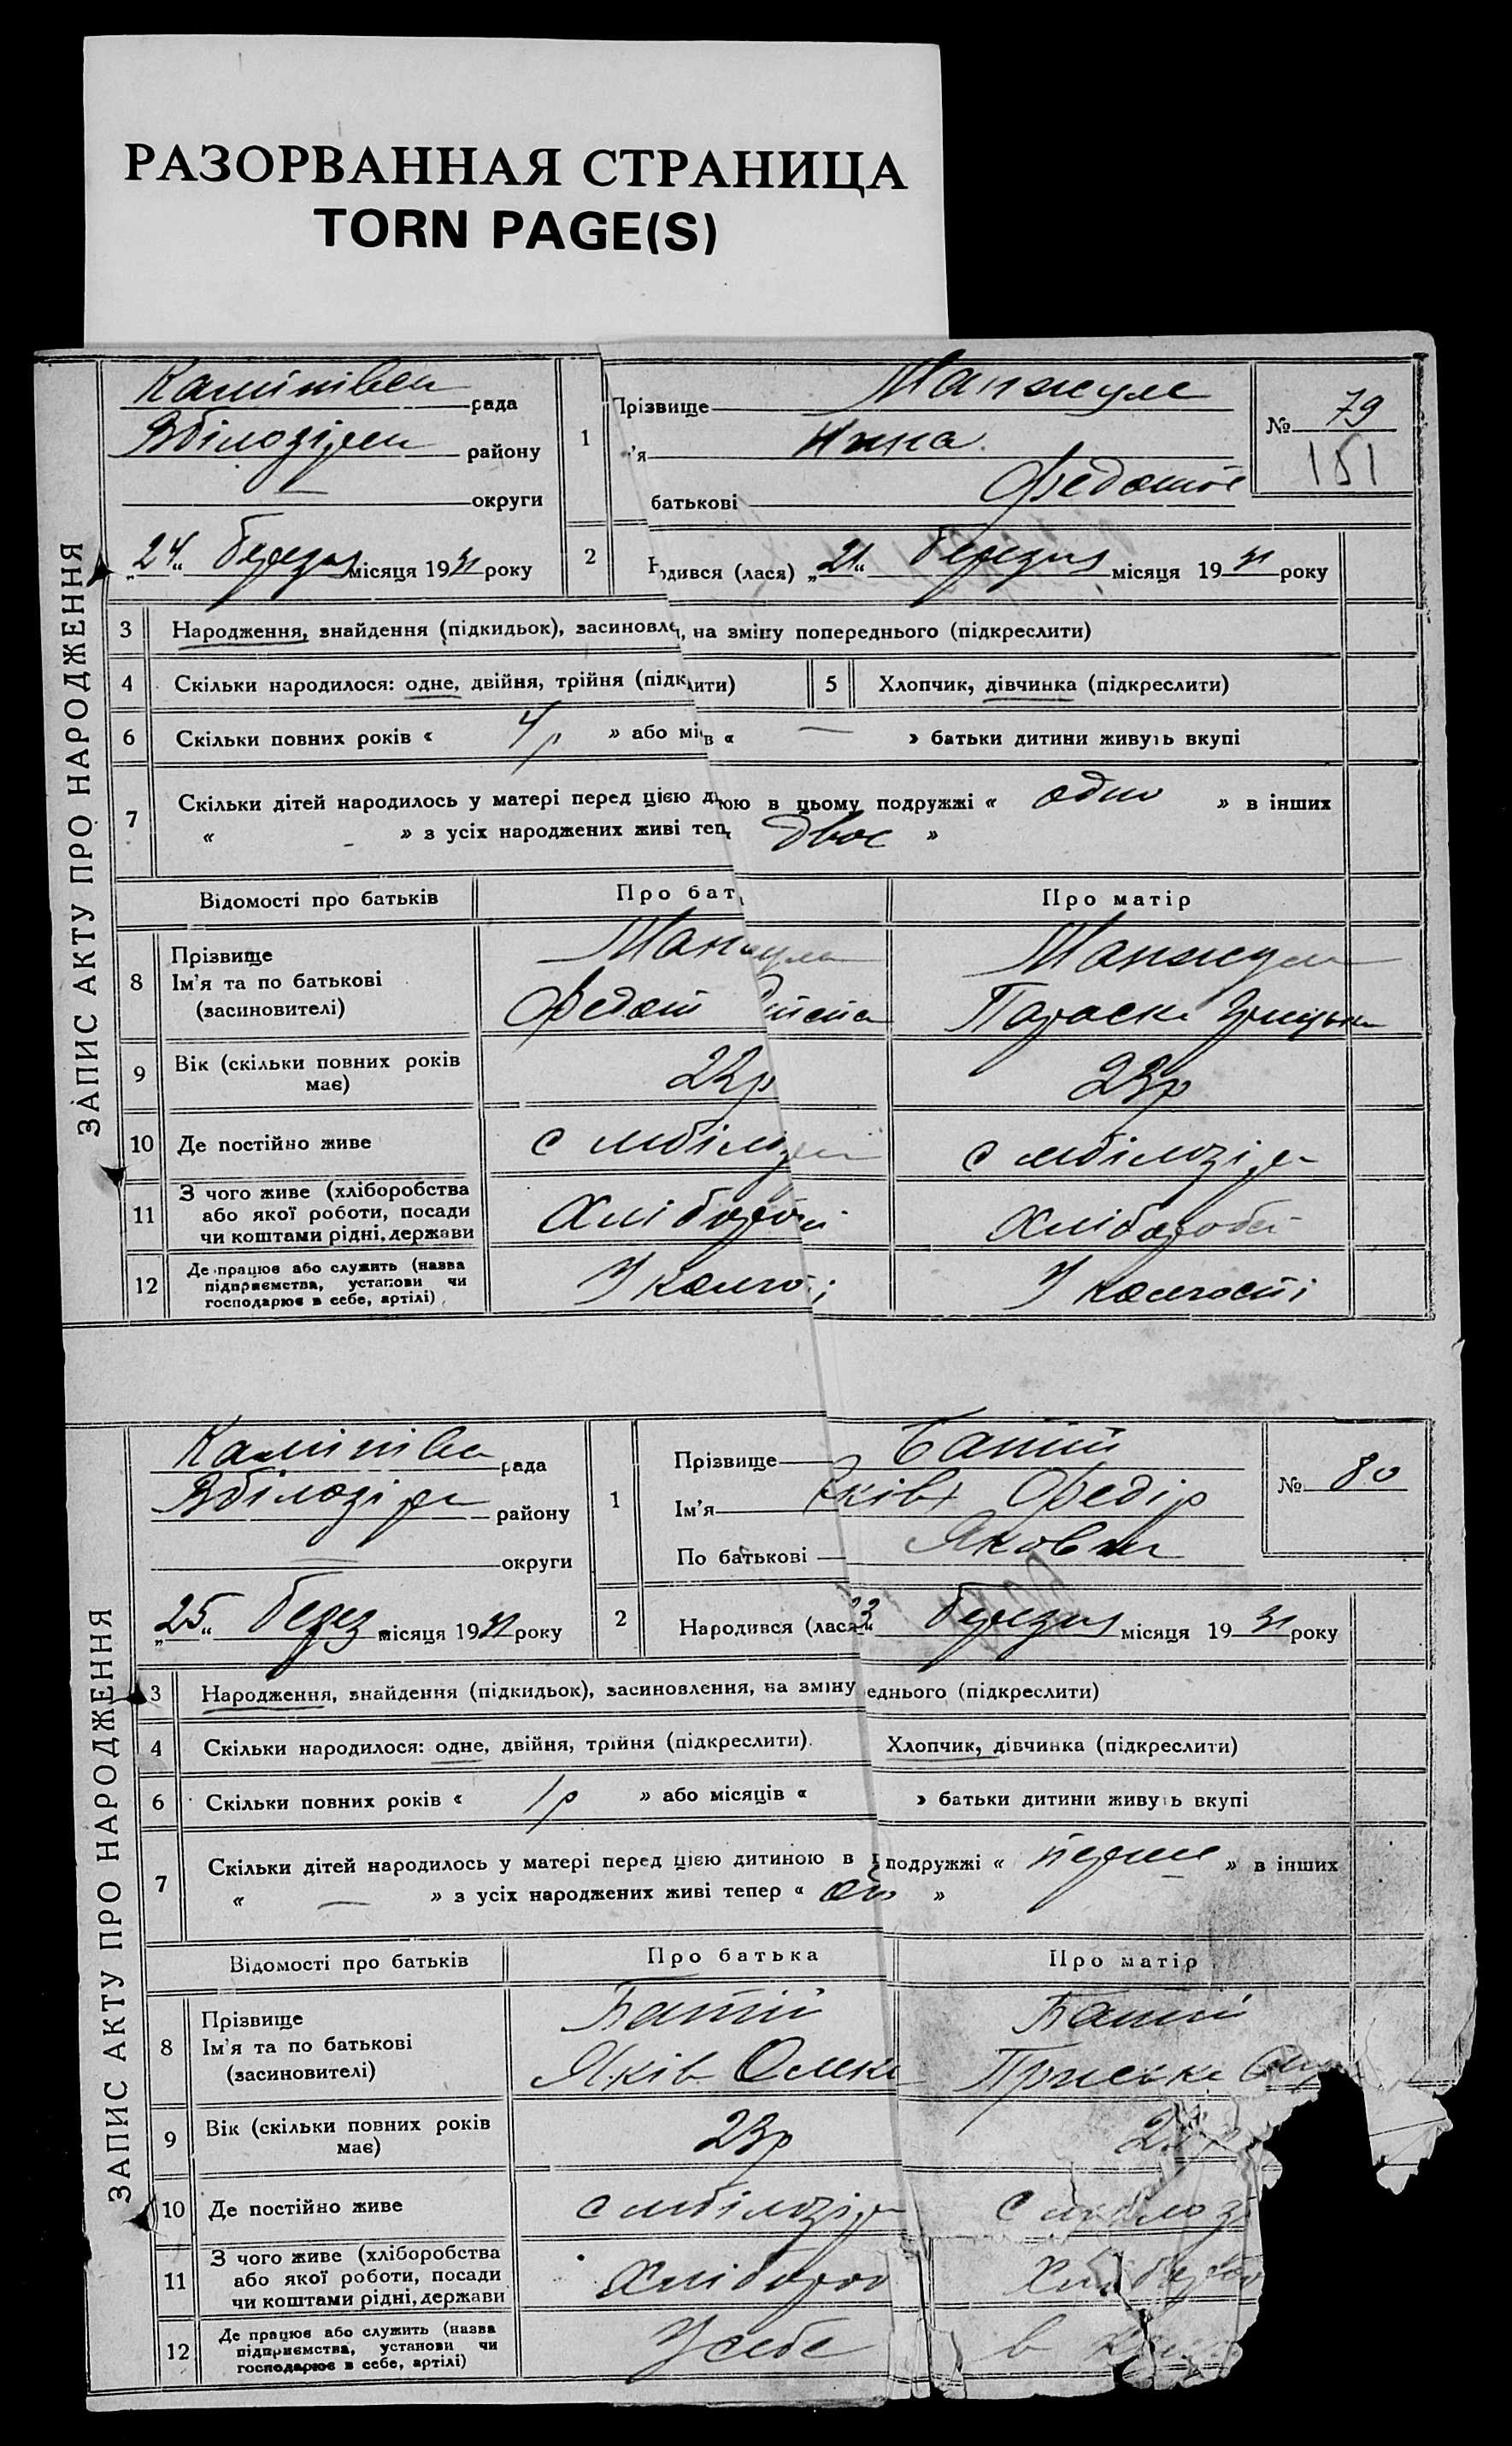 РАЗОРВАННАЯ СТРАНИЦА
TORN PAGE(S)
ЗАПИС АКТУ ПРО НАРОДЖЕННЯ
рада
району
округи
"24" березня місяця 1931 року
1
Прізвище Манжула
'я Нина
батькові
№ 79
151
2
одився (лася) "21" березня місяця 1931 року
3 Народження, знайдення (підкидьок), засиновле, на зміну попереднього (підкреслити)
4 Скільки народилося: одне, двійня, трійня (підклити)
5 Хлопчик, дівчинка (підкреслити)
6 Скільки повних років « 4р » або місв « — » батьки дитини живуть вкупі
7 Скільки дітей народилось у матері перед цією дною в цьому подружжі « одно » в інших
« » з усіх народжених живі теп двоє »
Відомості про батьків
Про бат
Про матір
8 Прізвище
Ім'я та по батькові
(засиновителі)
Манжула
Федот
Манжула
Параска
9 Вік (скільки повних років має)
22р
23р
10 Де постійно живе
с
с
11 З чого живе (хліборобства
або якої роботи, посади
чи коштами рідні, держави
Хлібороб
12 Де працює або служить (назва
підприємства, установи чи
господарює в себе, артілі)
У
У
ЗАПИС АКТУ ПРО НАРОДЖЕННЯ
рада
району
округи
"25" берез місяця 1931 року
1
Прізвище Батій
Ім'я Федір
По батькові Якович
№ 80
2
Народився (лася 23" березня місяця 1931 року
3 Народження, знайдення (підкидьок), засиновлення, на зміну еднього (підкреслити)
4 Скільки народилося: одне, двійня, трійня (підкреслити).
Хлопчик, дівчинка (підкреслити)
6 Скільки повних років « 1р » або місяців « » батьки дитини живуть вкупі
7 Скільки дітей народилось у матері перед цією дитиною в подружжі « перше » в інших
« — » з усіх народжених живі тепер « »
Відомості про батьків
Про батька
Про матір
8 Прізвище
Ім'я та по батькові
(засиновителі)
Батій
Яків Олекс
Батій
Пріська
9 Вік (скільки повних років має)
23р
10 Де постійно живе
с
с
11 З чого живе (хліборобства
або якої роботи, посади
чи коштами рідні, держави
Хлібороб
12 Де працює або служить (назва
підприємства, установи чи
господарює в себе, артілі)
У себе
в